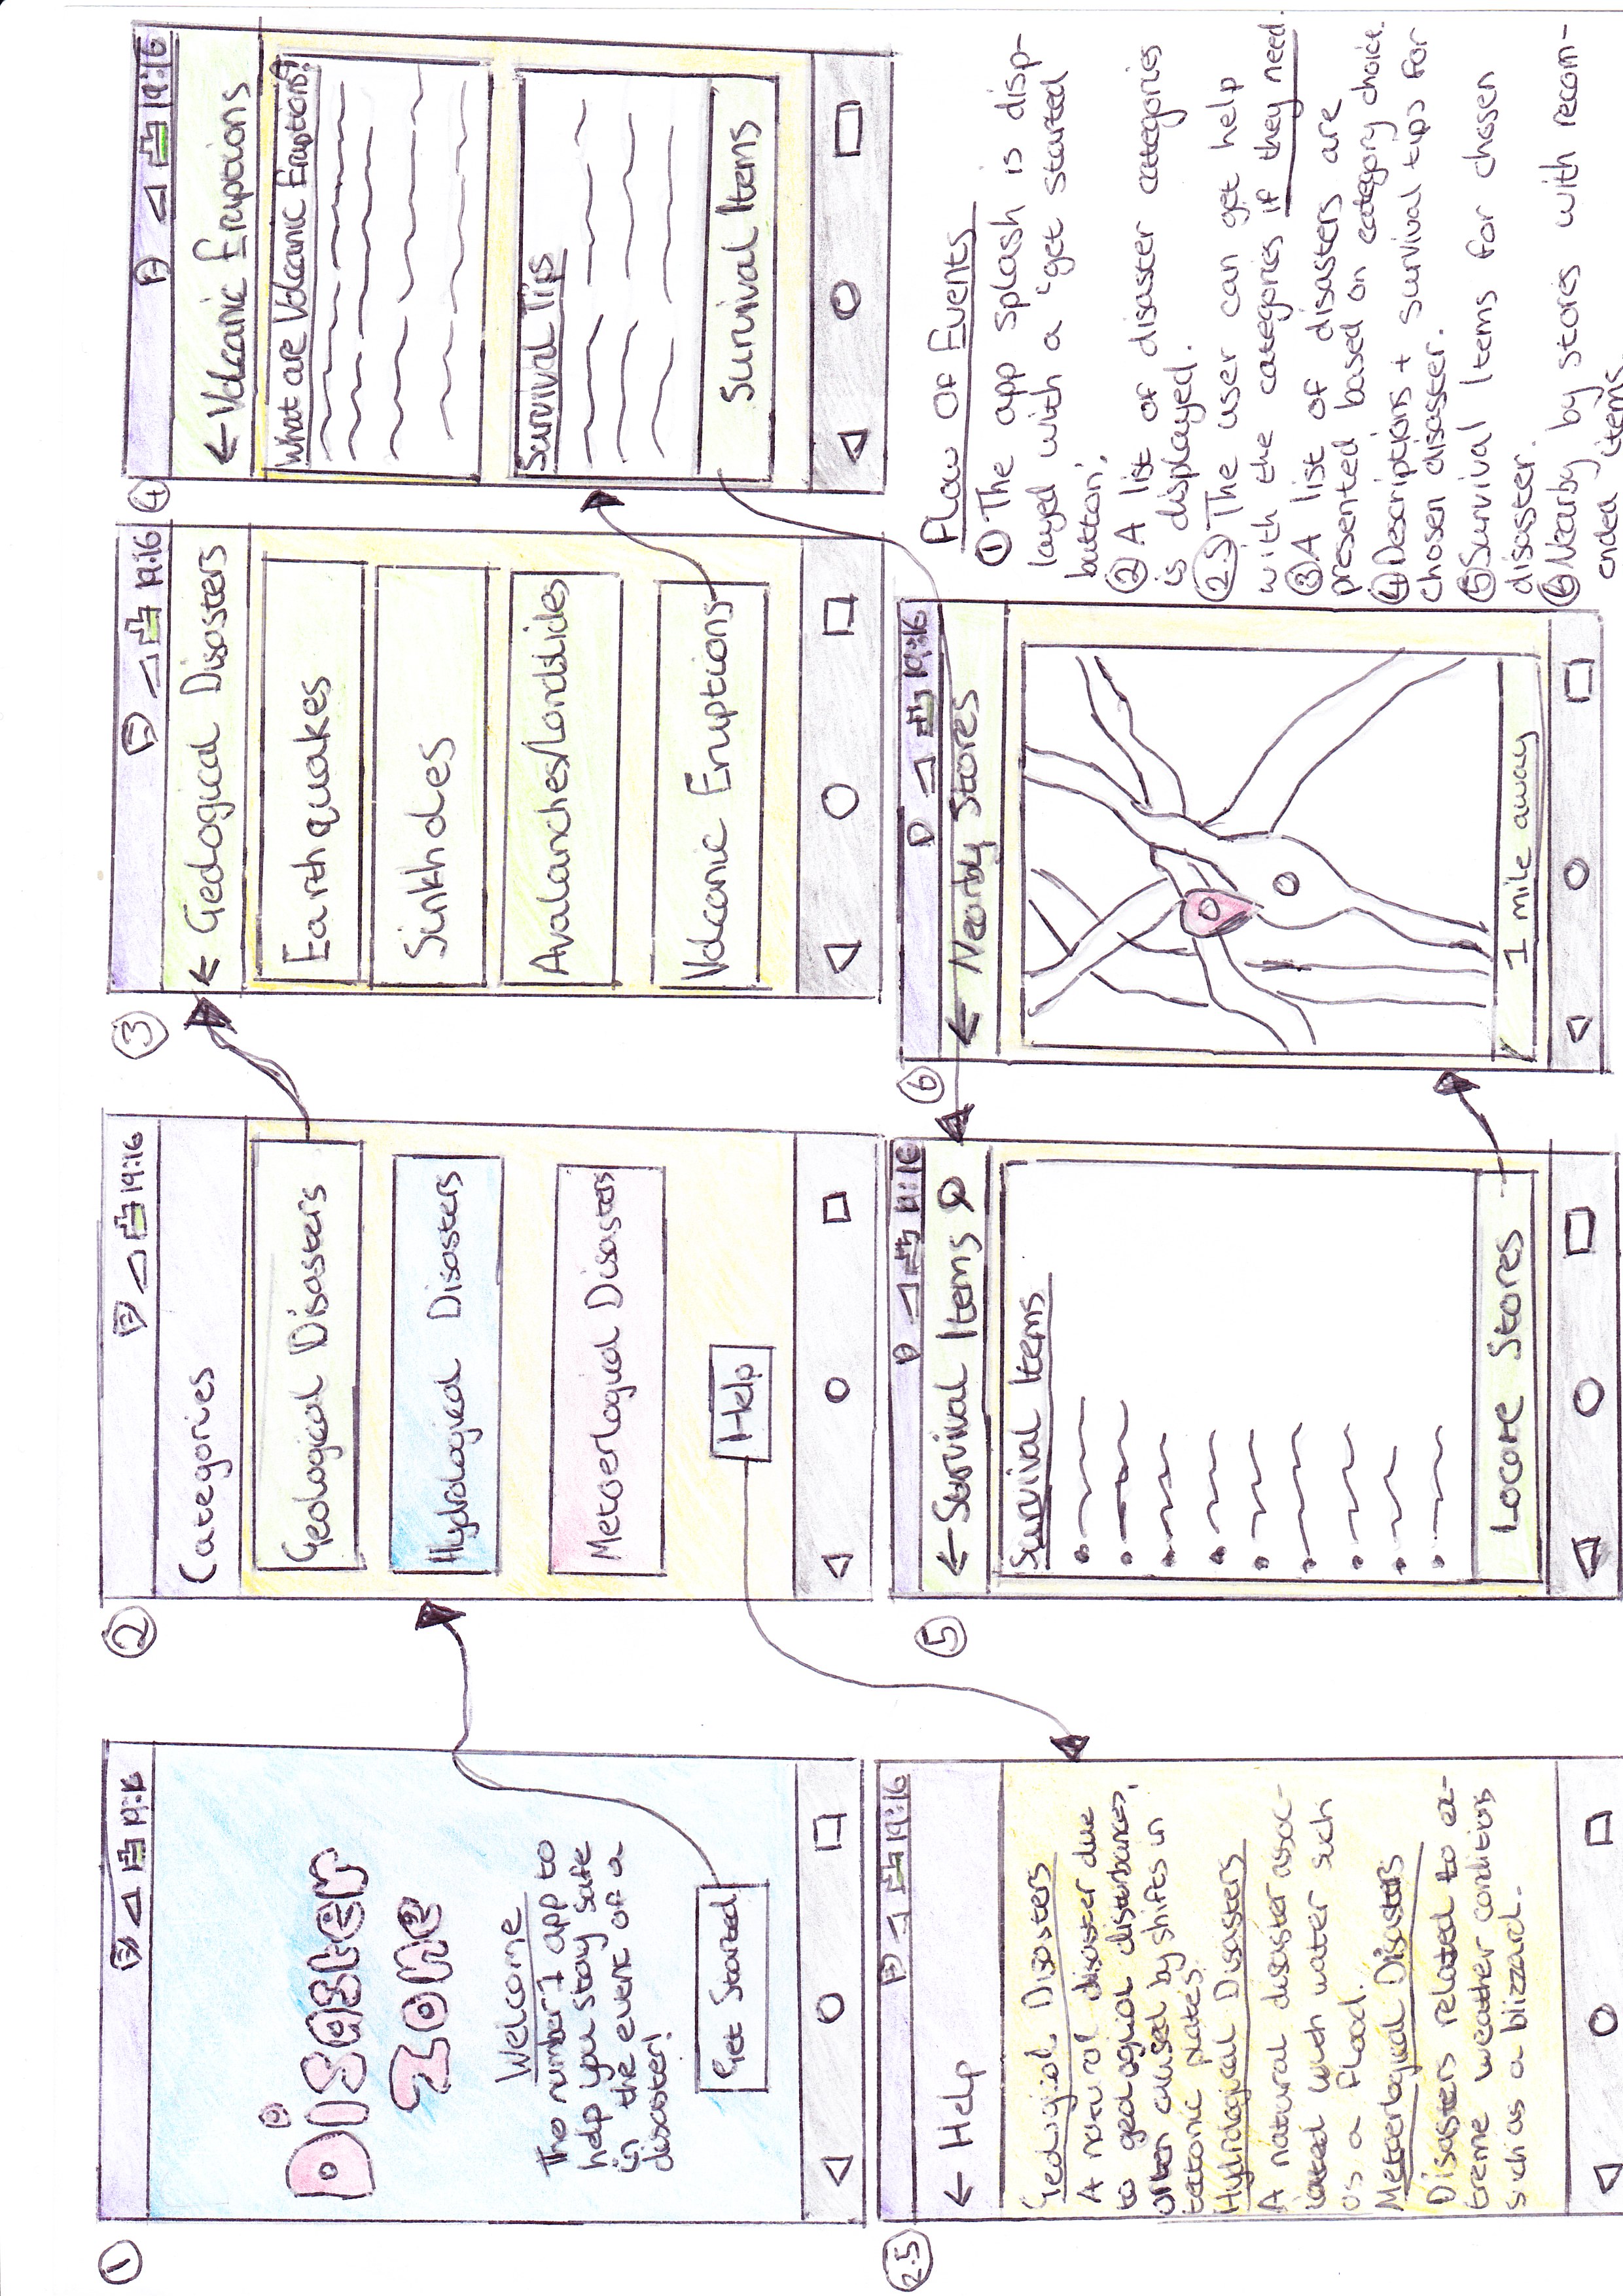 ①
19:16
Disaster
Zone
Welcome
The number 1 app to
help you stay safe
in the event of a
disaster!
Get Started
②
19:16
Categories
Geological Disasters
Hydrological Disasters
Meteorlogical Disasters
Help
③
19:16
← Geological Disasters
Earthquakes
Sinkholes
Avalanches/Landslides
Volcanic Eruptions
④
19:16
← Volcanic Eruptions
What are Volcanic Eruptions?
Survival Tips
Survival Items
2.5
19:16
← Help
Geological Disasters
A natural disaster due
to geological disturbances,
often caused by shifts in
tectonic plates.
Hydrological Disasters
A natural disaster assoc-
iated with water such
as a flood.
Meteorlogical Disasters
Disasters related to ex-
treme weather conditions
such as a blizzard.
⑤
19:16
← Survival Items
Survival Items
Locate Stores
⑥
19:16
← Nearby Stores
1 mile away
Flow Of Events
① The app splash is disp-
layed with a 'get started
button'.
② A list of disaster categories
is displayed.
2.5 The user can get help
with the categories if they need.
③ A list of disasters are
presented based on category choice.
④ Descriptions + survival tips for
chosen disaster.
⑤ Survival Items for chosen
disaster.
⑥ Nearby by stores with recom-
ended items.